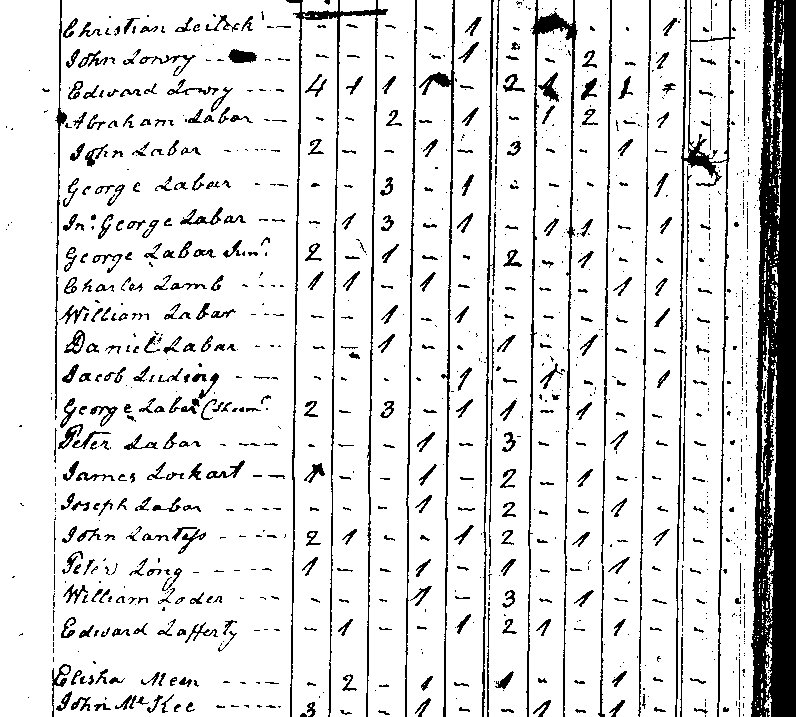 Christian Leitech - - - - 1 - - - 1 -
John Lowry - - - - 1 - - 2 - 1 -
Edward Lowry 4 1 1 1 - 2 1 2 1 - -
Abraham Labar - - 2 - 1 - 1 2 - 1 -
John Labar 2 - - 1 - 3 - - 1 - -
George Labar - - 3 - 1 - - - - 1 -
Jno. George Labar - 1 3 - 1 - 1 1 - 1 -
George Labar Junr. 2 - 1 - - 2 - 1 - - -
Charles Lamb 1 1 - 1 - - - - 1 1 -
William Labar - - 1 - 1 - - - - 1 -
Daniel Labar - - 1 - - 1 - 1 - - -
Jacob Luding - - - - 1 - 1 - - 1 -
George Labar 2 - 3 - 1 1 - 1 - - -
Peter Labar - - - 1 - 3 - - 1 - -
James Lockart 1 - - 1 - 2 - 1 - - -
Joseph Labar - - - 1 - 2 - - 1 - -
John Lantz 2 1 - - 1 2 - 1 - 1 -
Peter Long 1 - - 1 - 1 - - 1 - -
William Loder - - - 1 - 3 - 1 - - -
Edward Lafferty - 1 - - 1 2 1 - 1 - -
Elisha Meen - 2 - 1 - 1 - - 1 - -
John McKee 3 - - 1 - - 1 - 1 - -